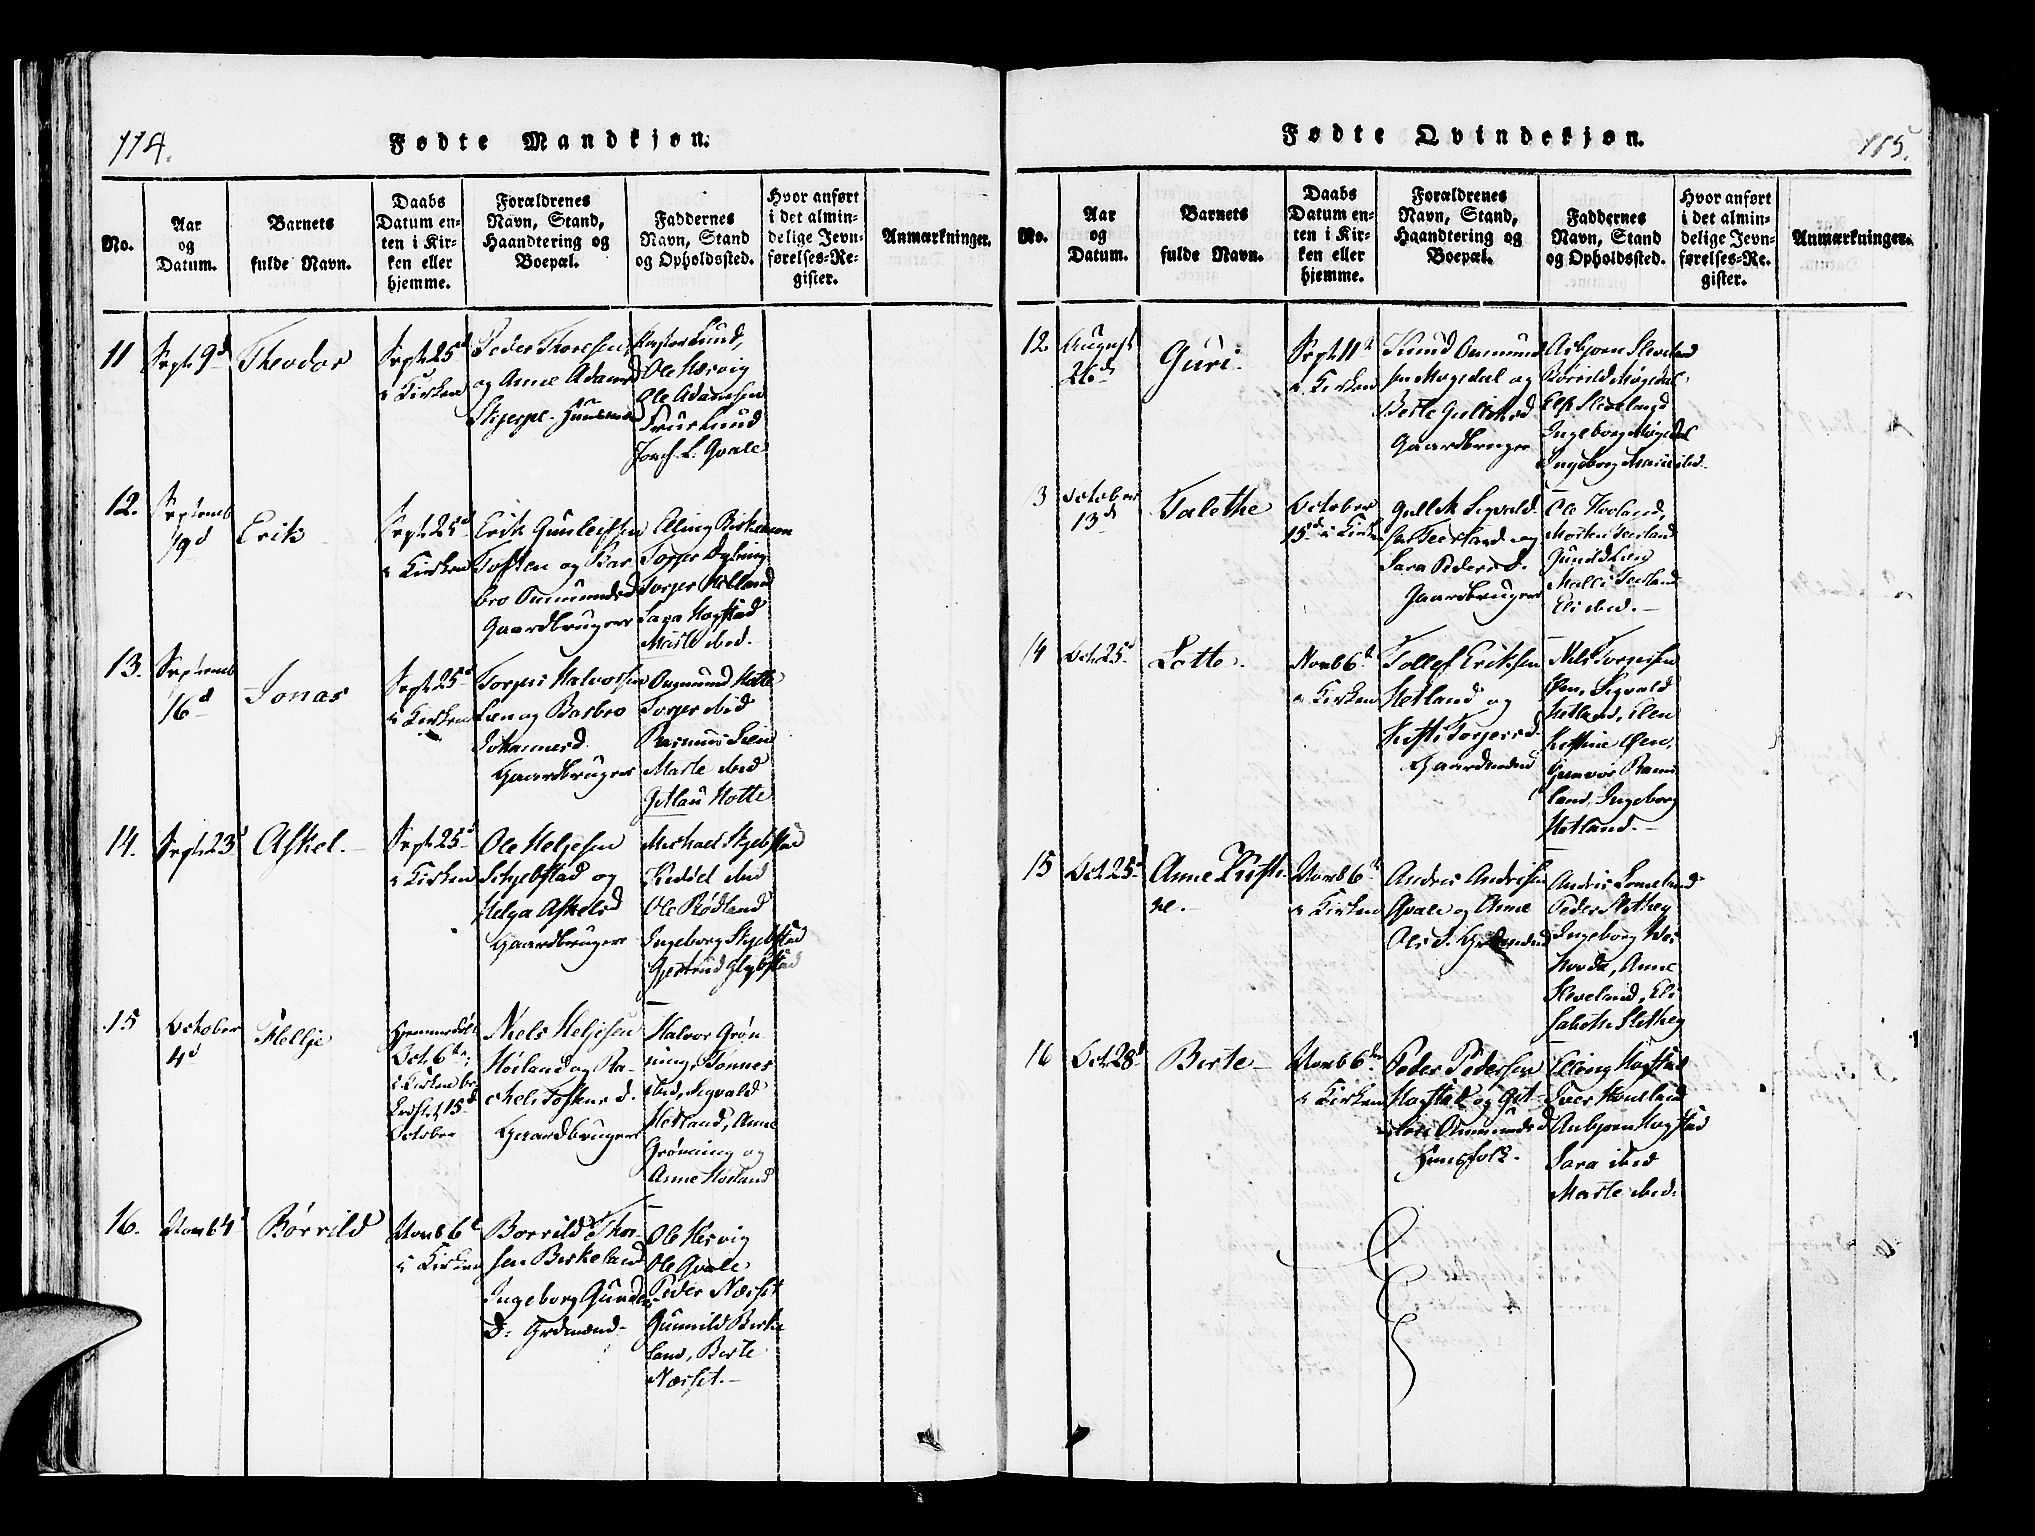 114.
Fødte Mandkjøn.
No.
Aar
og
Datum.
Barnets
fulde Navn.
Daabs
Datum en-
ten i Kir-
ken eller
hjemme.
Forældrenes
Navn, Stand,
Haandtering og
Boepæl.
Faddernes
Navn, Stand
og Opholdssted.
Hvor anført
i det almin-
delige Jevn-
førelses-Re-
gister.
Anmærkninger.
11
Sept. 9d
Theodor
Sept. 25d
i Kirken
Peder Thoresen
og Anne Adamsd
Lund,
Ole Hervig
Ole Adamsen
Lund
Josef L. Qvale
12.
Septemb
19d
Erik
Sept. 25d
i Kirken
Erik Gunleifsen
Toften og Bar
bro Ommundsd
Gaardbrugere
Elling Birkemoen
Torger
Torger Helland
Sara Hogstad
Marte ibid.
13.
Septemb
16d
Jonas
Sept. 25d
i Kirken
Torger Halvorsen
Lien og Barbro
Johannesd.
Gaardbrugere
Ommund Hotte
Torger ibid
Rasmus Lien
Marte ibid
Hotte
14.
Sept. 23d
Askel.
Sept. 25d
i Kirken
Ole Heljesen
Schjebstad og
Helga Askelsd
Gaardbrugere
Michael Skjebstad
ibid
Ole Rødland
Ingeborg Skjebstad
Gjertrud Skjebstad
15
October
4d
Mellje
Hjemmedøbt
Oct. 6te,
i Kirken be
15d
October
Niels Heljesen
Høiland og Ra-
chel Tostensd.
Gaardbrugere
Halvor Grøn
ning, Tønnes
ibid, Sigvald
Hetland, Anne
Grønning og
Anne Høiland
16.
Novb 4d
Børrild
Novb 6t
i Kirken
Borrild Thor-
sen Birkeland
Ingeborg Gunders
D. Grdmænd.
Ole Hervig
Ole Qvale
Peder Nærset
Gunnild Birke
land, Berte
Nærset.
115.
Fødte Qvindekjøn.
No.
Aar
og
Datum.
Barnets
fulde Navn.
Daabs
Datum en-
ten i Kir-
ken eller
hjemme.
Forældrenes
Navn, Stand,
Haandtering og
Boepæl.
Faddernes
Navn, Stand
og Opholdssted.
Hvor anført
i det almin-
delige Jevn-
førelses-Re-
gister.
Anmærkninger.
12.
August
26d
Guri.
Sept. 11t
i Kirken
Knud Ommund
sen Møgedal og
Berte
Gaardbruger
Asbjørn Sleveland
Borrild Møgedal
Sleveland
Ingeborg Møgedal
Ingeborg Marie ibid.
13
October
13d
Talethe
October
15d i Kirk
Gullik Sigvald-
sen Teisland og
Sara Pedersd.
Gaardbrugere
Ole Hovland,
Morten Teisland
Gunild Lien
Malli Teisland
Eli ibid.
14
Oct. 25d
Lotte.
Novb 6t
i Kirken
Tollef Eriksen
Hetland og
Torgersd.
Gaardmænd
Nils Torgersen
Øen, Sigvald
Hetland, Elen
Kirstine Øen,
Gunvor Rams
land, Ingeborg
Hetland.
15
Oct. 25d
Anne Kirsti-
ne.
Novb 6t
i Kirken
Andres Andresen
Qvale og Anne
Ols D. Grdmænd
Andres Lomeland
Peder Slethey
Ingeborg Ves
hovde, Anne
Sleveland, Eli
sabeth Slethey
16
Oct. 28d
Berte
Novb 6te
i Kirken
Peder Pedersen
Hogstad og
Ommundsd
Huusfolk.
Elling Hogstad
Iver Honeland
Anbjørn Hogstad
Sara ibid
Marte ibid.